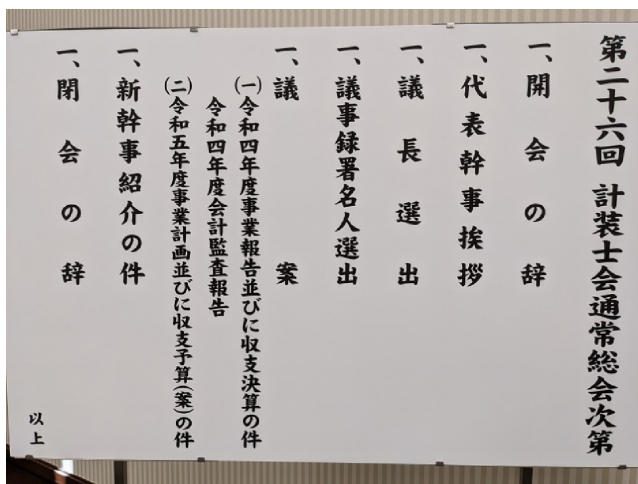 第二十六回 計装士会通常総会次第
一、開会の辞
一、代表幹事挨拶
一、議長選出
一、議事録署名人選出
一、議案
(一)令和四年度事業報告並びに収支決算の件
令和四年度会計監査報告
(二)令和五年度事業計画並びに収支予算(案)の件
一、新幹事紹介の件
一、閉会の辞
以上